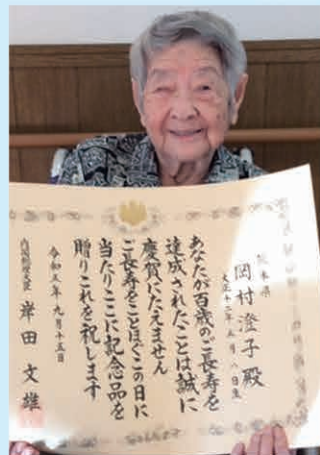 熊本県
岡村澄子殿
大正十二年五月八日生
あなたが百歳のご長寿を
達成されたことは誠に
慶賀にたえません
ご長寿をことほぐこの日に
当たりここに記念品を
贈りこれを祝します
令和五年九月十五日
内閣総理大臣 岸田文雄